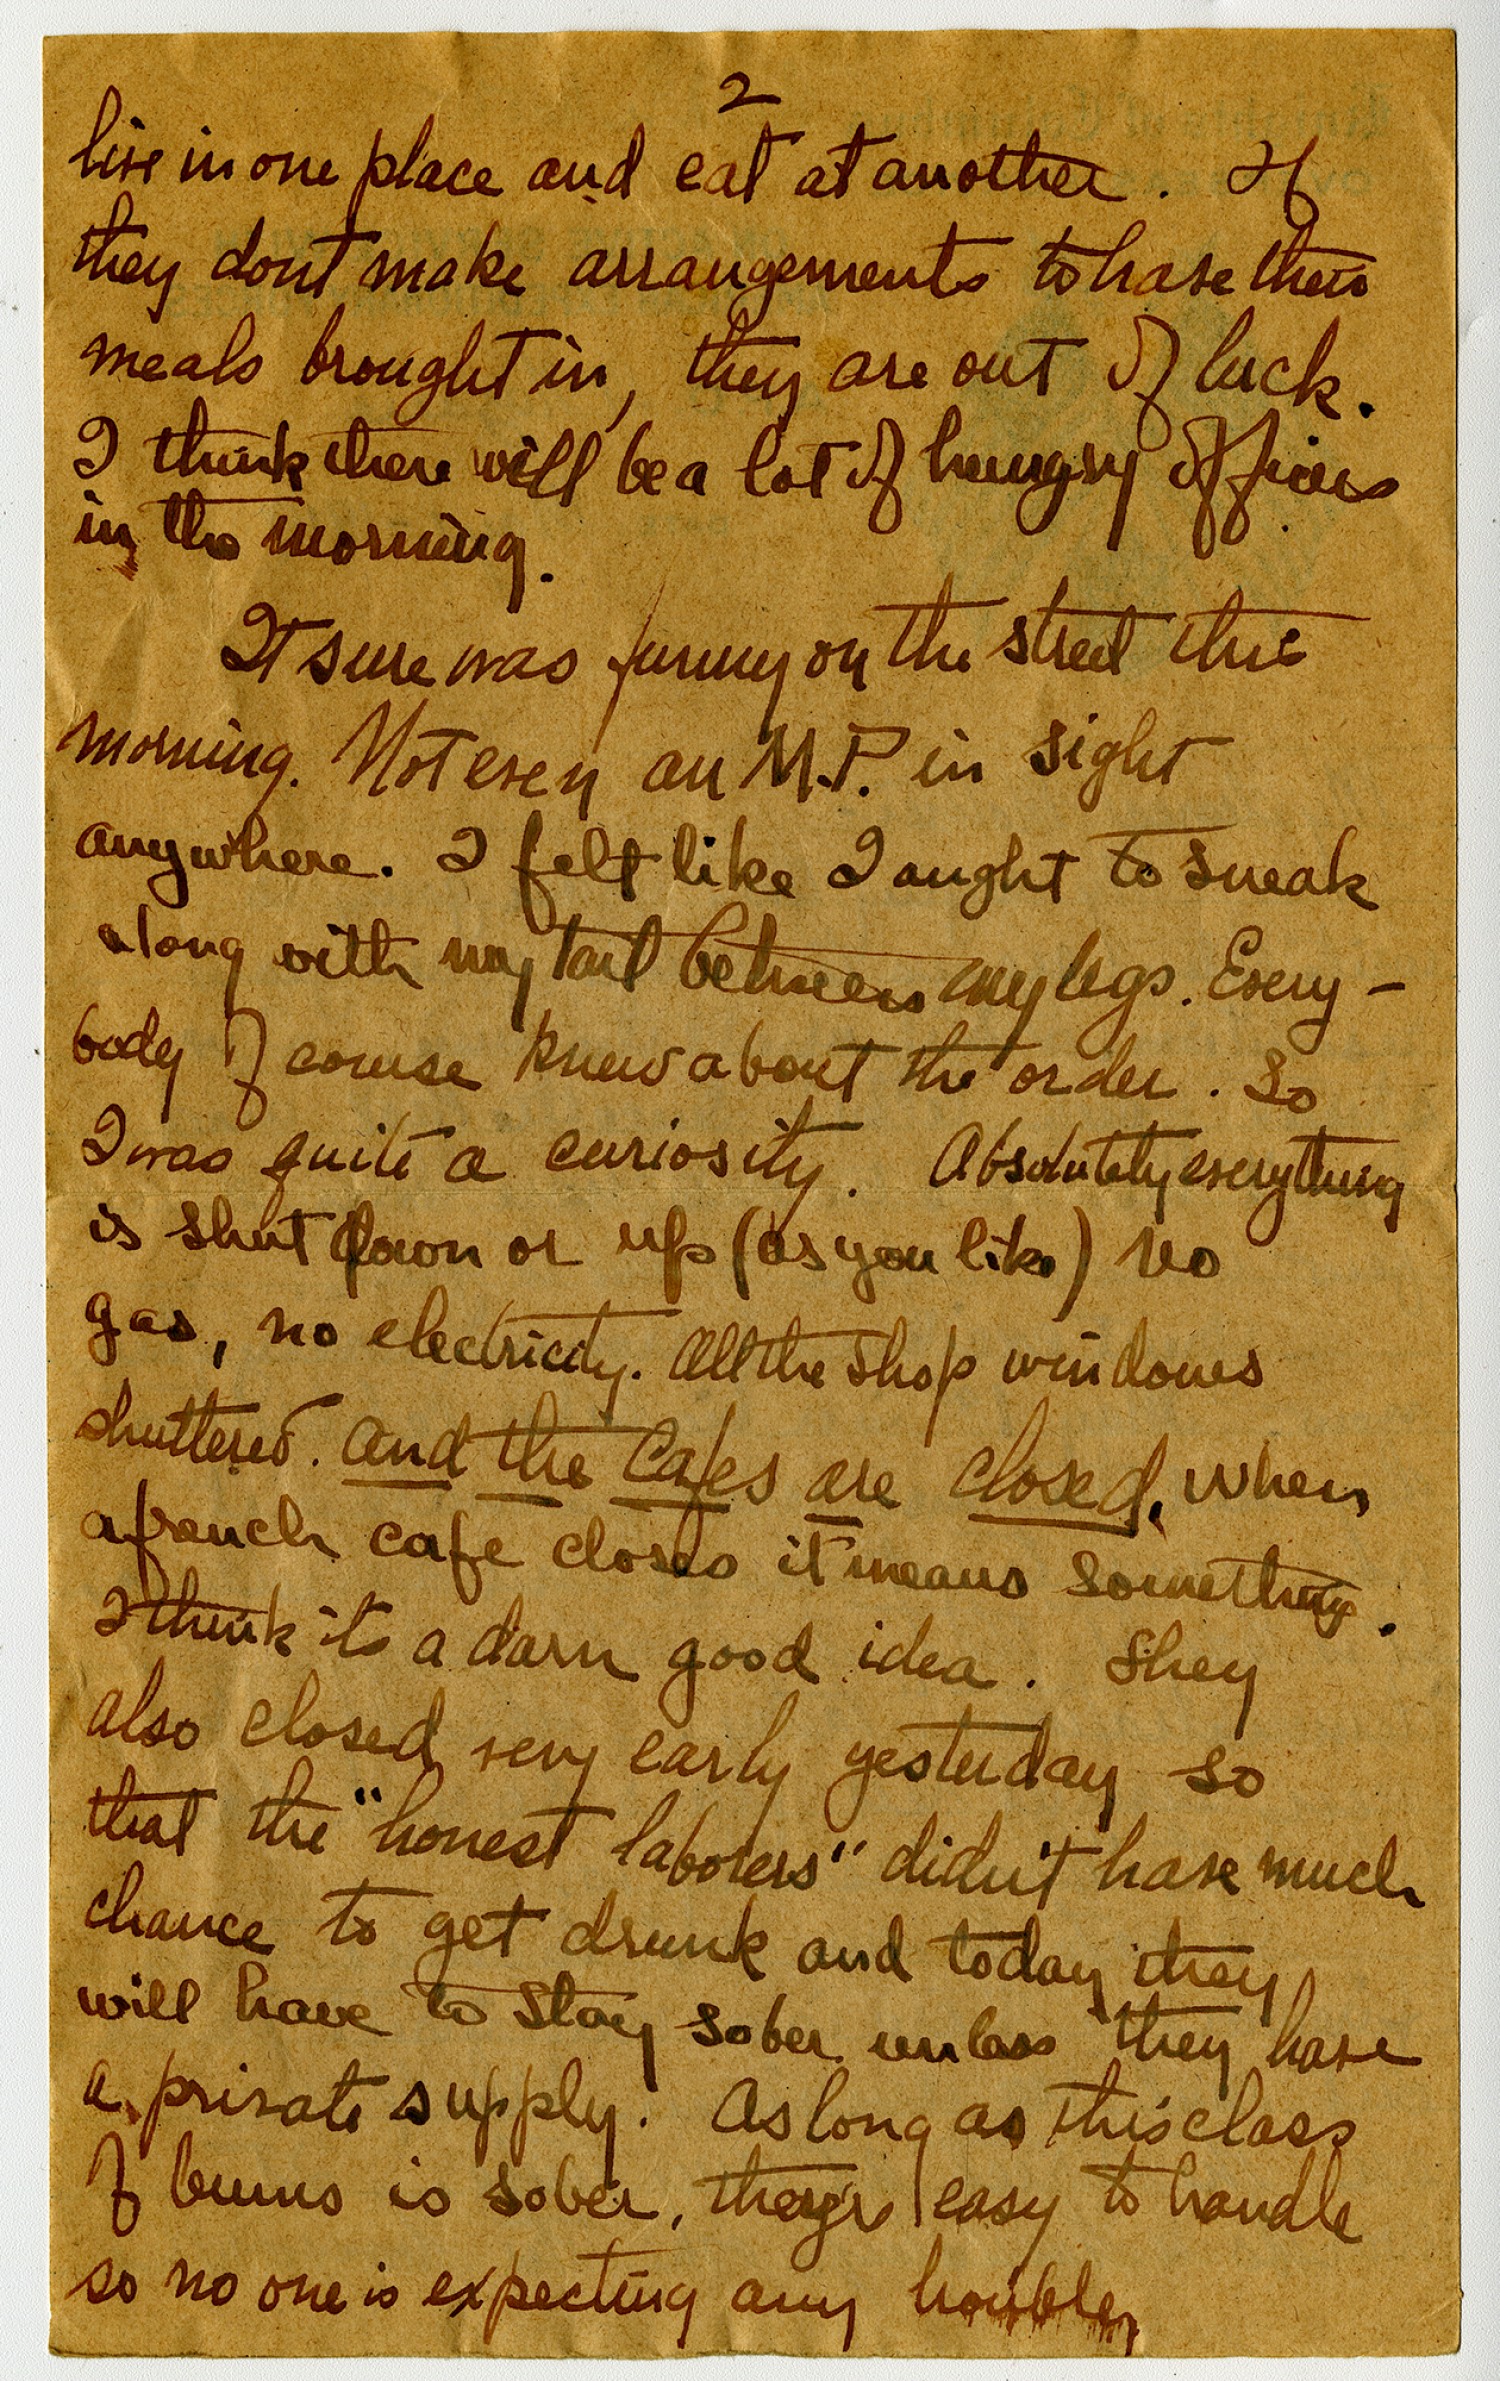 2
live in one place and eat at another. If
they dont make arrangements to have their
meals brought in, they are out of luck.
I think there will be a lot of hungry officers
in the morning.
It sure was funny on the street this
morning. Not even an M.P. in sight
anywhere. I felt like I ought to sneak
along with my tail between my legs. Every-
body of course knew about the order. So
I was quite a curiosity. Absolutely everything
is shut down or up (as you like) No
gas, no electricity. All the shop windows
shuttered. And the Cafes are closed. When
a french cafe closes it means something.
I think its a darn good idea. They
also closed very early yesterday so
that the "honest laborers" didn't have much
chance to get drunk and today they
will have to stay sober unless they have
a private supply. As long as this class
of bums is sober, they're easy to handle
so no one is expecting any trouble,